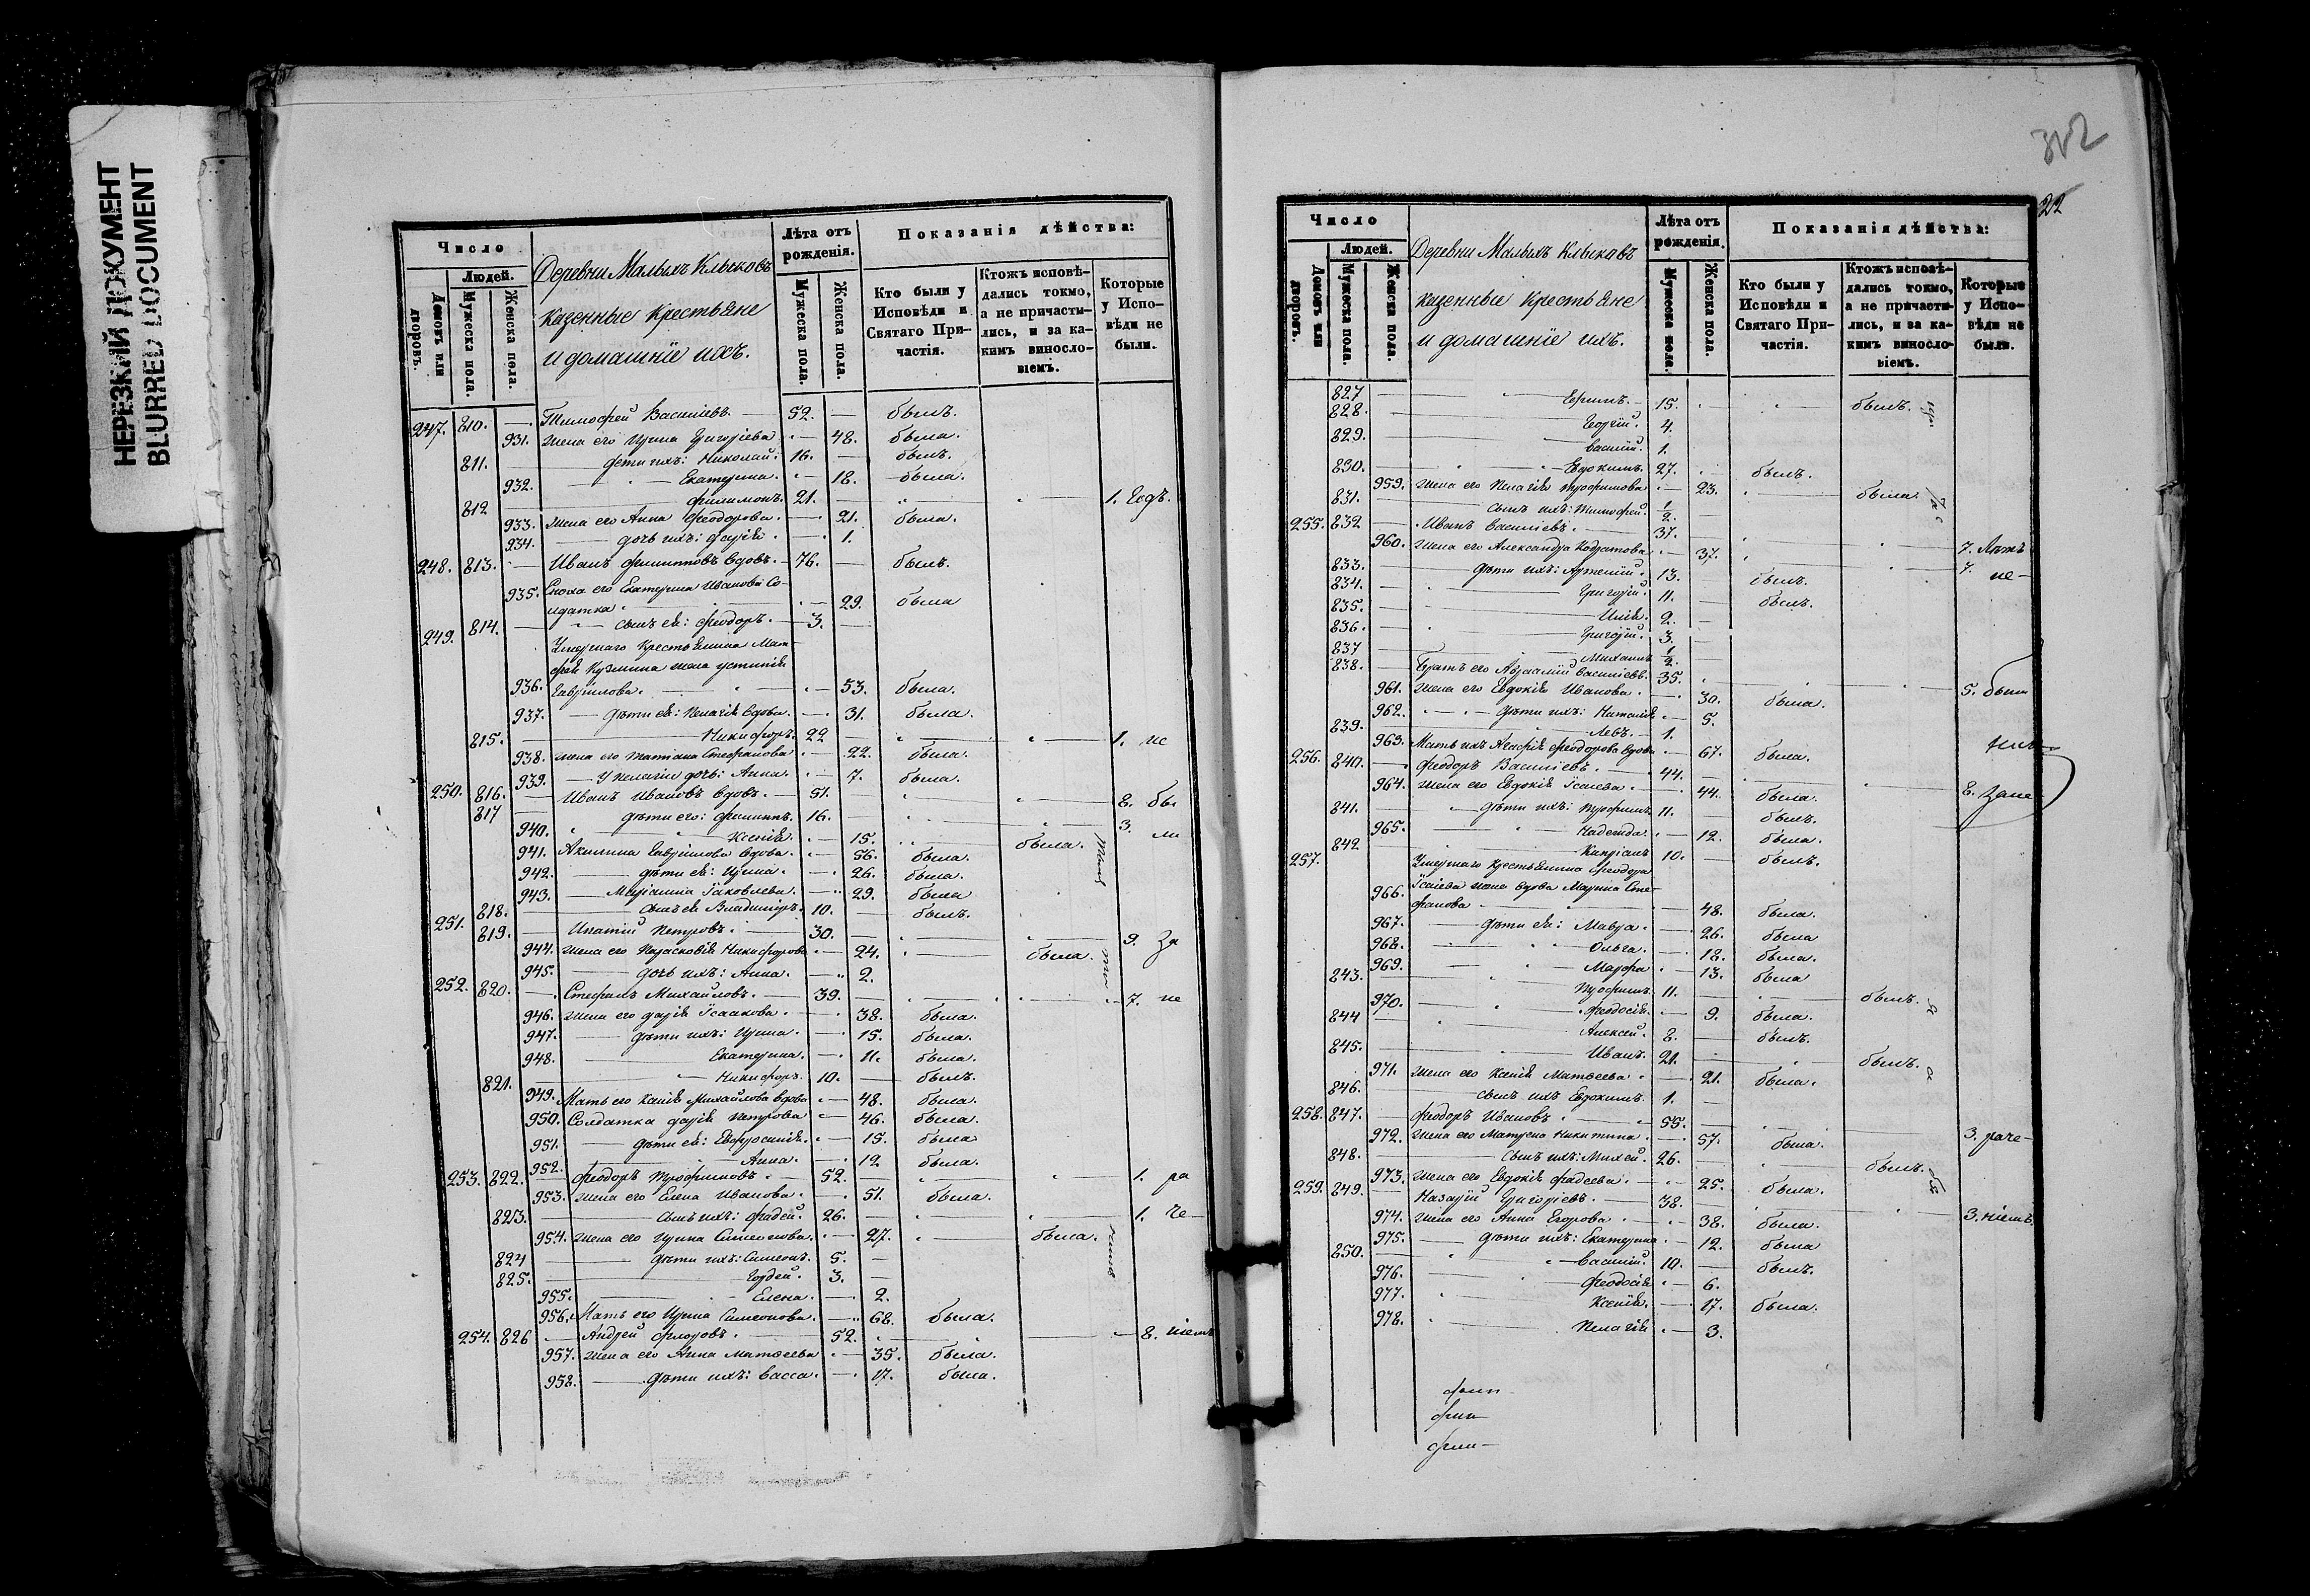 НЕРЕЗКИЙ ДОКУМЕНТ
BLURRED DOCUMENT
Число
Людей.
Домовъ или дворовъ.
Мужеска пола.
Женска пола.
Деревни Малыхъ Клыковъ
казенные крестьяне
и домашніе ихъ.
Лѣта отъ рожденія.
Мужеска пола.
Женска пола.
Показанія дѣйства:
Кто были у Исповѣди и Святаго Причастія.
Ктожъ исповѣдались токмо, а не причастились, и за какимъ винословіемъ.
Которые у Исповѣди не были.
247. 810. — Тимофей Васильевъ. — 52. — былъ.
931. жена его Ирина Григорьева — 48. была.
811. — дети ихъ: Николай. 16. — былъ.
932. Екатерина. — 18. — была.
812 — Филимонъ. 21. — 1. Годъ.
933. жена его Анна Феодорова. — 21. была.
934. — дочь ихъ: Дарія. — 1.
248. 813. — Иванъ Филипповъ вдовъ. — 76. — былъ.
935. Сноха его Екатерина Иванова Со-
лдатка — 29. была
814. — сынъ ея: Феодоръ. — 3. —
249. Умершаго крестьянина Мат-
фея Кузмина жена Устинія
936. Гаврилова. — 53. была.
937. — дѣти ея: Пелагія вдова. — 31. была.
815. — Никифоръ. 22 — 1. не
938. жена его Татіана Стефанова — 22. была.
939. — У Пелагіи дочь: Анна. — 7. была.
250. 816. — Иванъ Ивановъ вдовъ. — 51. 8. бы
817 — дѣти его: Филиппъ. 16. — 3. ли
940. Ксенія. — 15. была.
941. Акилина Гаврилова вдова. — 56. была.
942. — дѣти ея: Ирина. — 26. была.
943. — Маріамна Іаковлева. — 29. была
818. — сынъ ея Владимиръ. 10. — былъ.
251. 819. — Ипатій Петровъ. — 30. — 9. за
944. жена его Парасковія Никифорова — 24. была.
945. — дочь ихъ: Анна. — 2.
252. 820. — Стефанъ Михайловъ. — 39. — 7. не
946. жена его Дарія Ісаакова. — 38. была.
947. — дѣти ихъ: Ирина. — 15. была.
948. Екатерина. — 11. была.
821. — Никифоръ. 10. — былъ.
949. Мать его Ксенія Михайлова вдова — 48. была.
950. Солдатка Дарія Петрова — 46. была.
951. — дѣти ея: Евфросинія. — 15. была
952. — Анна. — 12 была.
253. 822. — Феодоръ Трофимовъ — 52. — 1. ра
953. жена его Елена Иванова. — 51. была.
823. — сынъ ихъ: Фадей. 26. — 1. че-
954. жена его Ирина Симеонова. — 27. была.
824 — дѣти ихъ: Симеонъ. 5. —
825. — Гордей. 3. —
955. — Елена. — 2.
956. Мать его Ирина Симеонова. — 68. была.
254. 826 — Андрей Флоровъ. — 52. — 8. ніемъ
957. жена его Анна Матѳеева — 35. была.
958. — дѣти ихъ: Васса. — 17. была.
22
Число
Людей.
Домовъ или дворовъ.
Мужеска пола.
Женска пола.
Деревни Малыхъ Клыковъ
казенные крестьяне
и домашніе ихъ.
Лѣта отъ рожденія.
Мужеска пола.
Женска пола.
Показанія дѣйства:
Кто были у Исповѣди и Святаго Причастія.
Ктожъ исповѣдались токмо, а не причастились, и за какимъ винословіемъ.
Которые у Исповѣди не были.
827 — Ефимъ. — 15. былъ.
828. — Георгій. 4.
829. — Василій. 1.
830. — Евдокимъ. 27. былъ.
959. жена его Пелагія Трофимова — 23. была.
831. — сынъ ихъ: Тимофей. 1/2. —
255. 832 — Иванъ Васильевъ. — 37. 7. Лѣтъ
960. жена его Александра Кодратова — 37. 7. не-
833. — дѣти ихъ: Артемій. 13. — былъ.
834. — Григорій. 11. — былъ.
835. — Илія. 9. —
836. — Григорій. 3. —
837 — Михаилъ 1/2. —
838. — Братъ его Авраамій Васильевъ. 35. 5. были
961. жена его Евдокія Иванова. — 30. была.
962. — дѣти ихъ: Наталія — 5.
839. — Левъ. — 1.
963. Мать ихъ Агафія Феодорова вдова — 67. была.
256. 840. — Феодоръ Васильевъ. — 44. — 8. зане-
964. жена его Евдокія Ісаева. — 44. была.
841. — дѣти ихъ: Трофимъ 11. — былъ.
965. — Надежда. — 12. была.
842 — Кипріанъ 10. — былъ.
257. Умершаго крестьянина Феодора
Ісаіева жена вдова Марина Сте-
966. фанова — 48. была.
967. — дѣти ея: Мавра. — 26. была
968. Ольга. — 18. была.
969. Марфа — 13. была
843. Трофимъ. 11. — былъ.
970. — Феодосія. — 9. была.
844 — Алексей. 8. — былъ.
845. — Иванъ. 21. былъ.
971. жена его Ксенія Матѳеева. — 21. была.
846. — сынъ ихъ Евдокимъ. 1. —
258. 847. — Феодоръ Ивановъ — 55. — 3. раче-
972. жена его Матрена Никитина — 57. была.
848. — сынъ ихъ: Михей. 26. — былъ.
973. жена его Евдокія Фадеева. — 25. была.
259. 849. — Назарій Григорьевъ. — 38. — 3. ніемъ.
974. жена его Анна Егорова — 38. была.
975. — дѣти ихъ: Екатерина — 12. была
850. — Василій. 10. — былъ.
976. Феодосія — 6.
977. Ксенія. — 17. была.
978. Пелагія — 3.